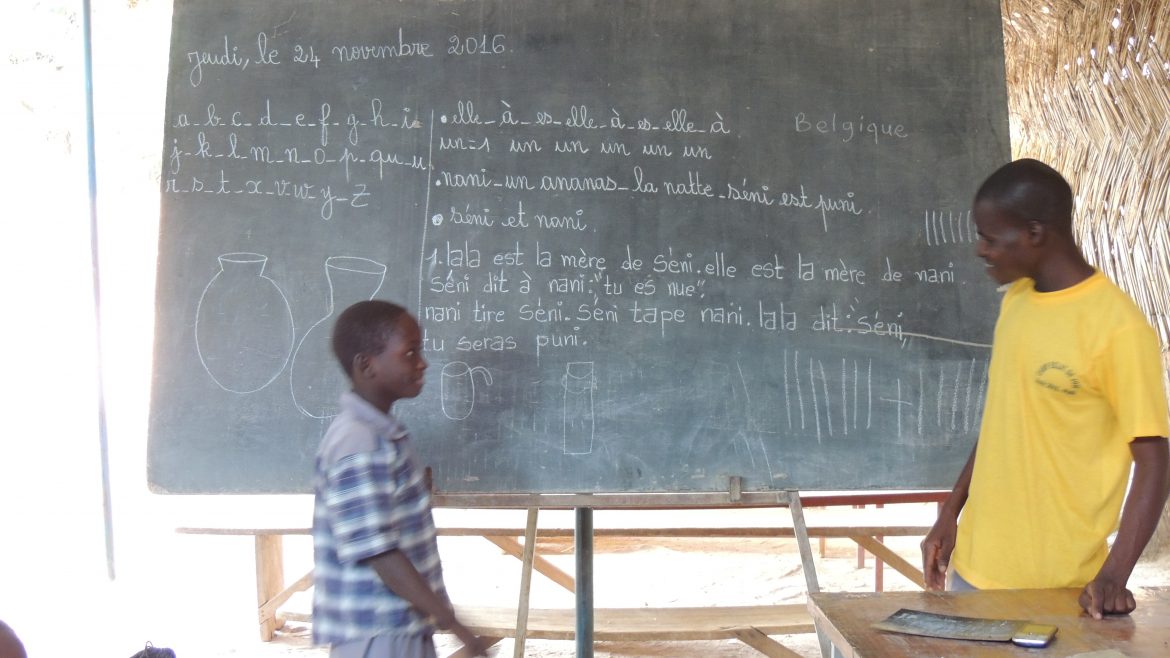 Jeudi, le 24 novembre 2016.
a_b_c_d_e_f_g_h_i
j_k_l_m_n_o_p_qu_u
r_s_t_x_v w_y_z
.elle_à_es_elle_à_es_elle_à
un=1 un un un un un
.nani_un ananas_la natte_séni est puni.
. séni et nani.
1. lala est la mère de Séni.elle est la mère de nani.
Séni dit à nani:"tu es nue".
nani tire Séni. Séni tape nani. lala dit: Séni,
tu seras puni.
Belgique